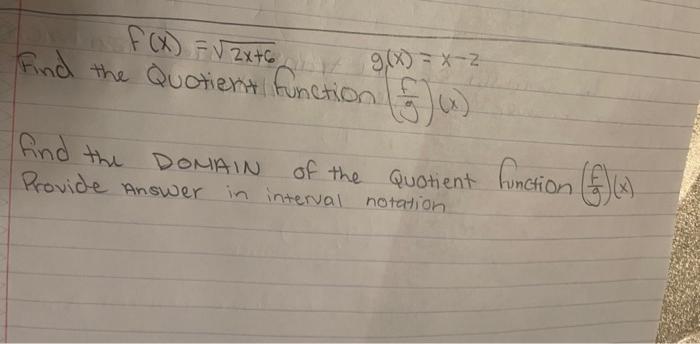 f(x) = √2x+6 g(x) = x-2
Find the Quotient function (f/g)(x)
find the DOMAIN of the Quotient function (f/g)(x)
Provide Answer in interval notation